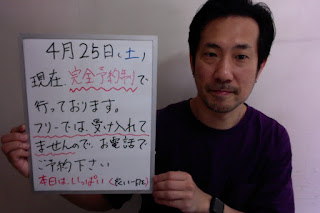 4月25日(土)
現在 完全予約制で
行っております。
フリーでは、受け入れて
ませんので、お電話で
ご予約下さい
本日は、いっぱい